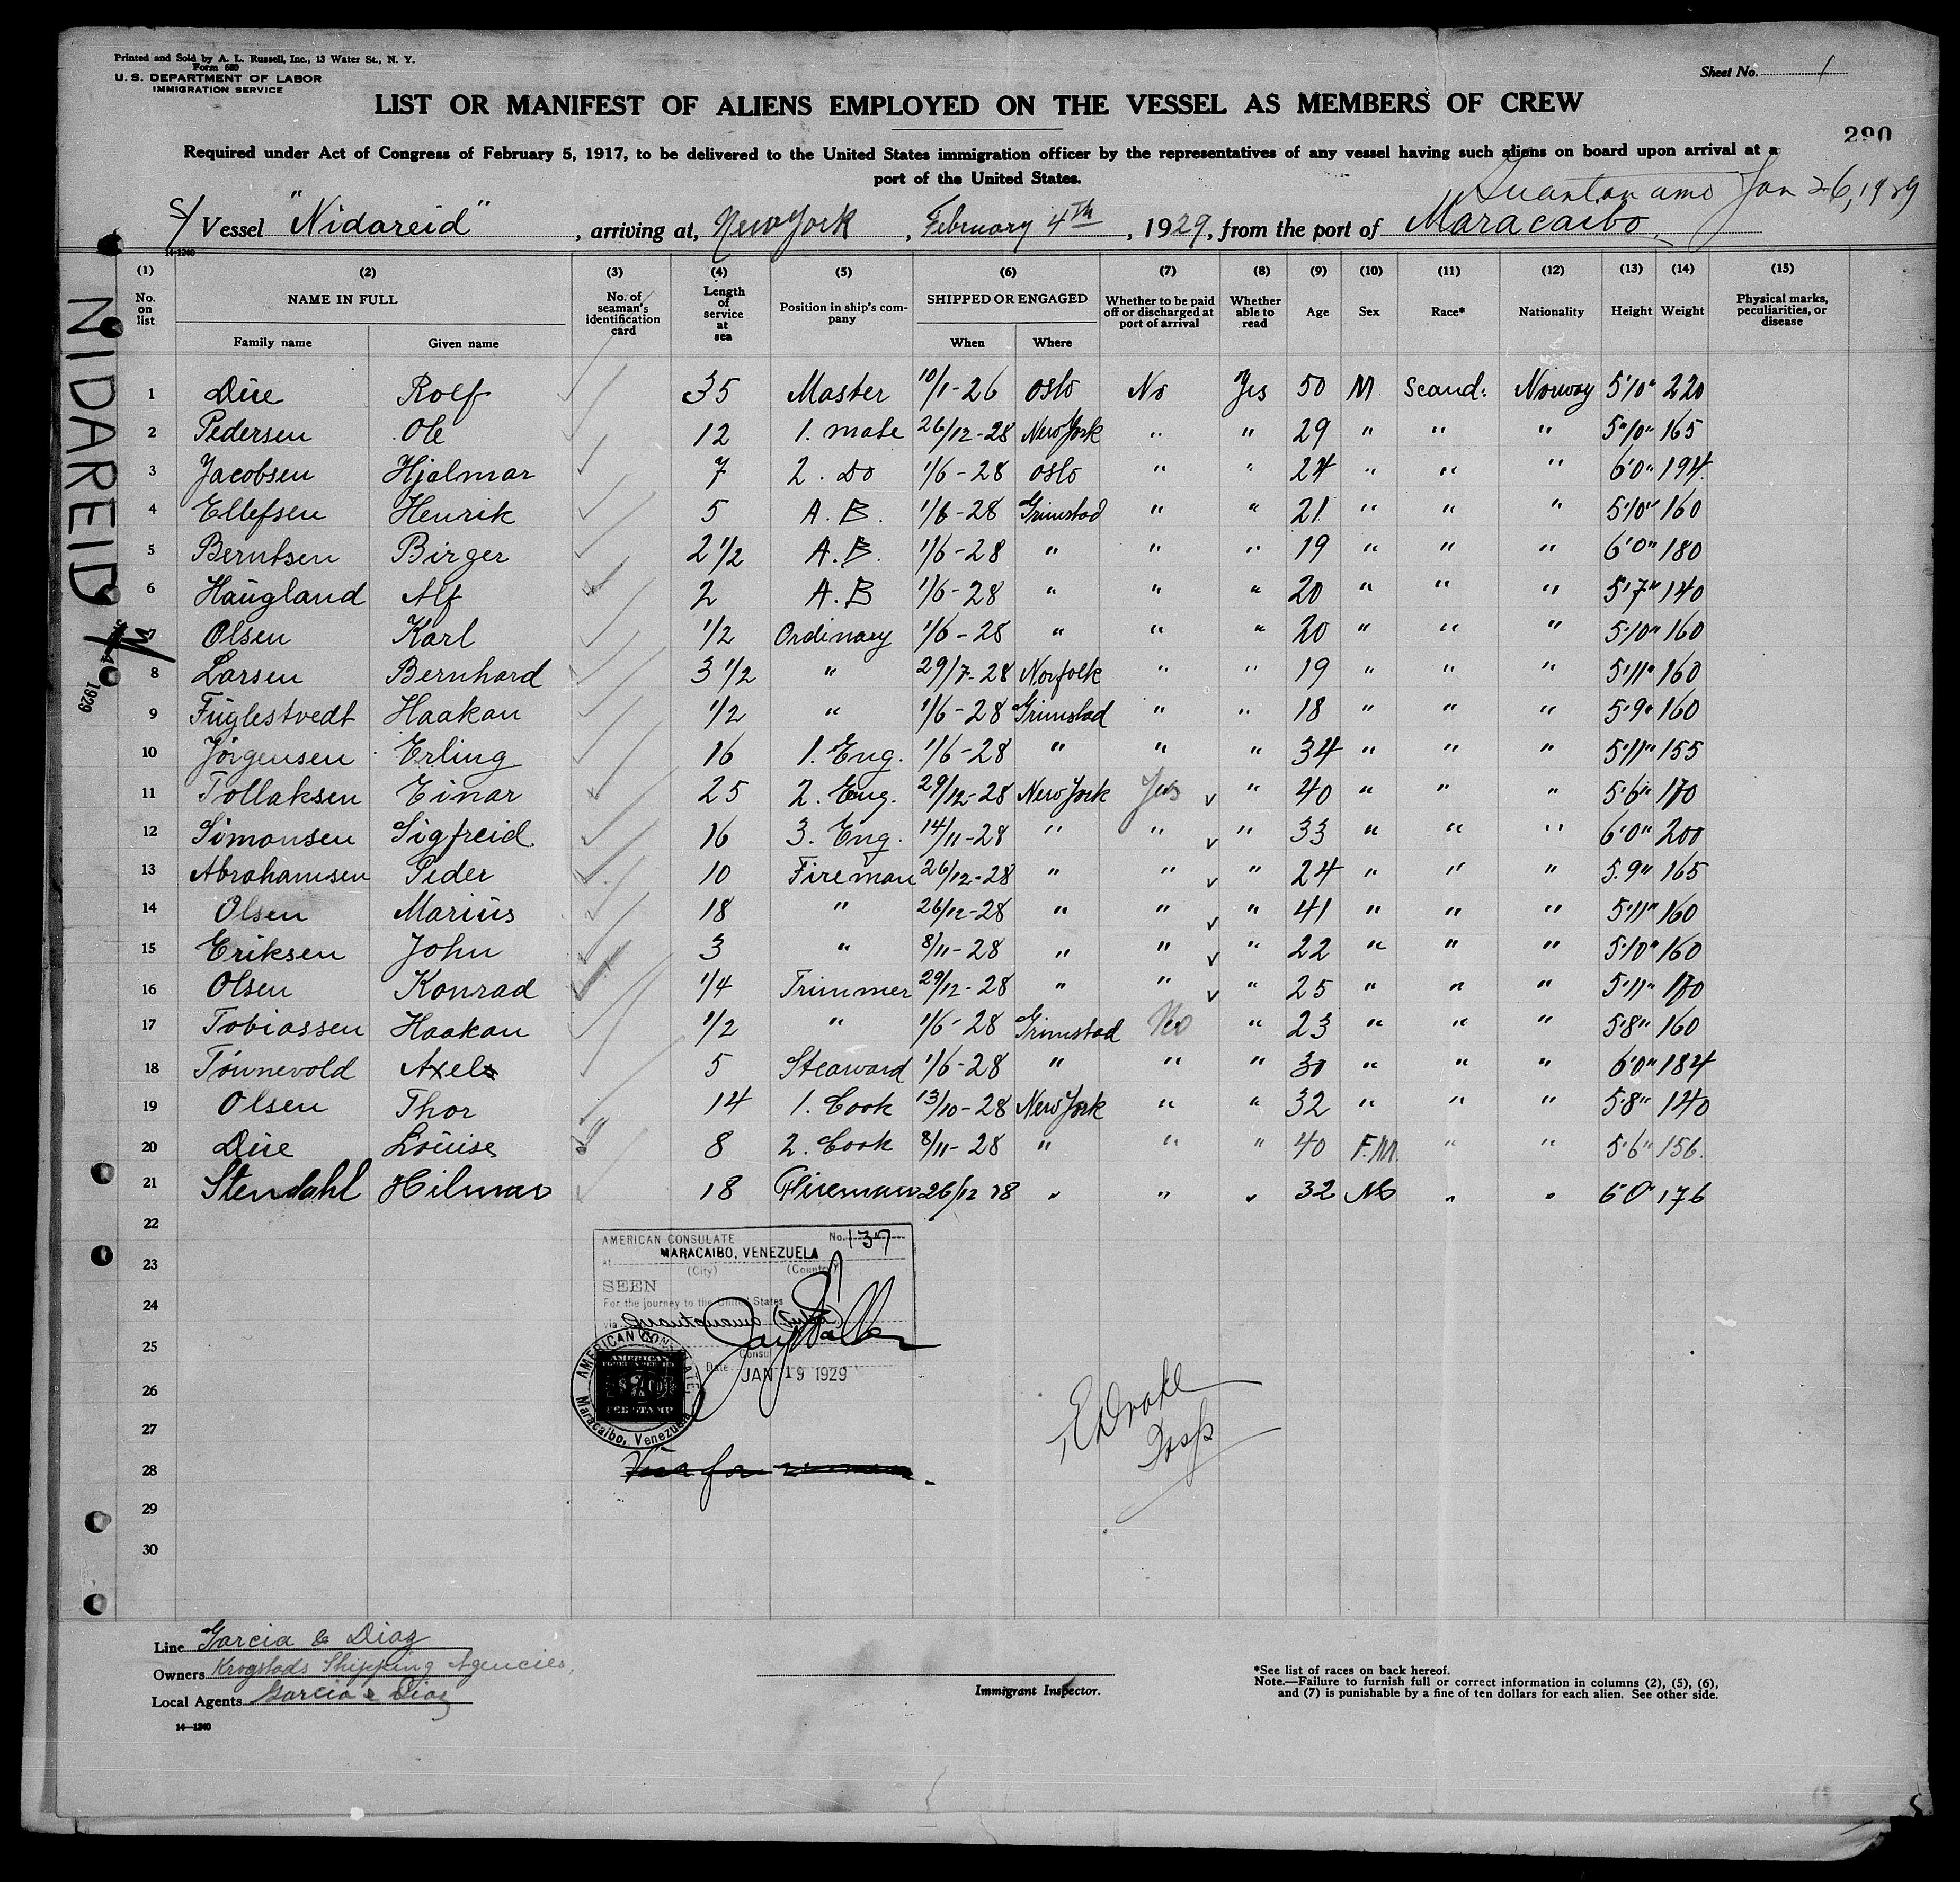 Printed and Sold by A. L. Russell, Inc., 13 Water St., N. Y.
Form 680
U. S. DEPARTMENT OF LABOR
IMMIGRATION SERVICE
Sheet No. 1
LIST OR MANIFEST OF ALIENS EMPLOYED ON THE VESSEL AS MEMBERS OF CREW
290
Required under Act of Congress of February 5, 1917, to be delivered to the United States immigration officer by the representatives of any vessel having such aliens on board upon arrival at a
port of the United States.
Guantanamo Jan 26, 1929
S/ Vessel "Nidareid", arriving at, New York, February 4th, 1929, from the port of Maracaibo
14-1240
NIDAREID
1929
(1) (2) (3) (4) (5) (6) (7) (8) (9) (10) (11) (12) (13) (14) (15)
No. on list NAME IN FULL No. of seaman's identification card Length of service at sea Position in ship's company SHIPPED OR ENGAGED Whether to be paid off or discharged at port of arrival Whether able to read Age Sex Race* Nationality Height Weight Physical marks, peculiarities, or disease
Family name Given name When Where
1 Düe Rolf 35 Master 10/1-26 Oslo No Yes 50 M Scand: Norway 5'10" 220
2 Pedersen Ole 12 1. mate 26/12-28 New York " " 29 " " " 5"10" 165
3 Jacobsen Hjalmar 7 2. Do 1/6-28 Oslo " " 24 " " " 6'0" 194.
4 Ellefsen Henrik 5 A. B. 1/6-28 Grimstad " " 21 " " " 5'10" 160
5 Berntsen Birger 2 1/2 A. B. 1/6-28 " " " 19 " " " 6'0" 180
6 Haügland Alf 2 A. B 1/6-28 " " " 20 " " " 5'7" 140
7 Olsen Karl 1/2 Ordinary 1/6-28 " " " 20 " " " 5'10" 160
8 Larsen Bernhard 3 1/2 " 29/7-28 Norfolk " " 19 " " " 5'11" 160
9 Füglestvedt Haakan 1/2 " 1/6-28 Grimstad " " 18 " " " 5'9" 160
10 Jörgensen Erling 16 1. Eng. 1/6-28 " " " 34 " " " 5'11" 155
11 Tollaksen Einar 25 2. Eng. 29/12-28 New York Yes v " 40 " " " 5'6" 170
12 Simonsen Sigfreid 16 3. Eng. 14/11-28 " " v " 33 " " " 6'0" 200
13 Abrahamsen Peder 10 Fireman 26/12-28 " " v " 24 " " " 5.9" 165
14 Olsen Mariüs 18 " 26/12-28 " " v " 41 " " " 5'11" 160
15 Eriksen John 3 " 8/11-28 " " v " 22 " " " 5'10" 160
16 Olsen Konrad 1/4 Trimmer 29/12-28 " " v " 25 " " " 5'11" 170
17 Tobiassen Haakan 1/2 " 1/6-28 Grimstad No " 23 " " " 5'8" 160
18 Tönnevold Axel 5 Steaward 1/6-28 " " " 30 " " " 6'0" 184
19 Olsen Thor 14 1. Cook 13/10-28 New York " " 32 " " " 5'8" 140
20 Düe Loüise 8 2. Cook 8/11-28 " " " 40 F.M. " " 5'6" 156.
21 Stendahl Hilmar 18 Fireman 26/12 28 " " " 32 M " " 6'0" 176
22
23
24
25
26
27
28
29
30
AMERICAN CONSULATE No. 137
at MARACAIBO, VENEZUELA
(City) (Country)
SEEN
For the journey to the United States
via Guantanamo (Cuba)
Consul
Date JAN 19 1929
AMERICAN CONSULATE
AMERICAN
FEE STAMP
Maracaibo, Venezuela
E Drake
Insp
Line Garcia & Diaz
Owners Krogstads Shipping Agencies,
Local Agents Garcia & Diaz
14—1240
Immigrant Inspector.
*See list of races on back hereof.
Note.—Failure to furnish full or correct information in columns (2), (5), (6),
and (7) is punishable by a fine of ten dollars for each alien. See other side.